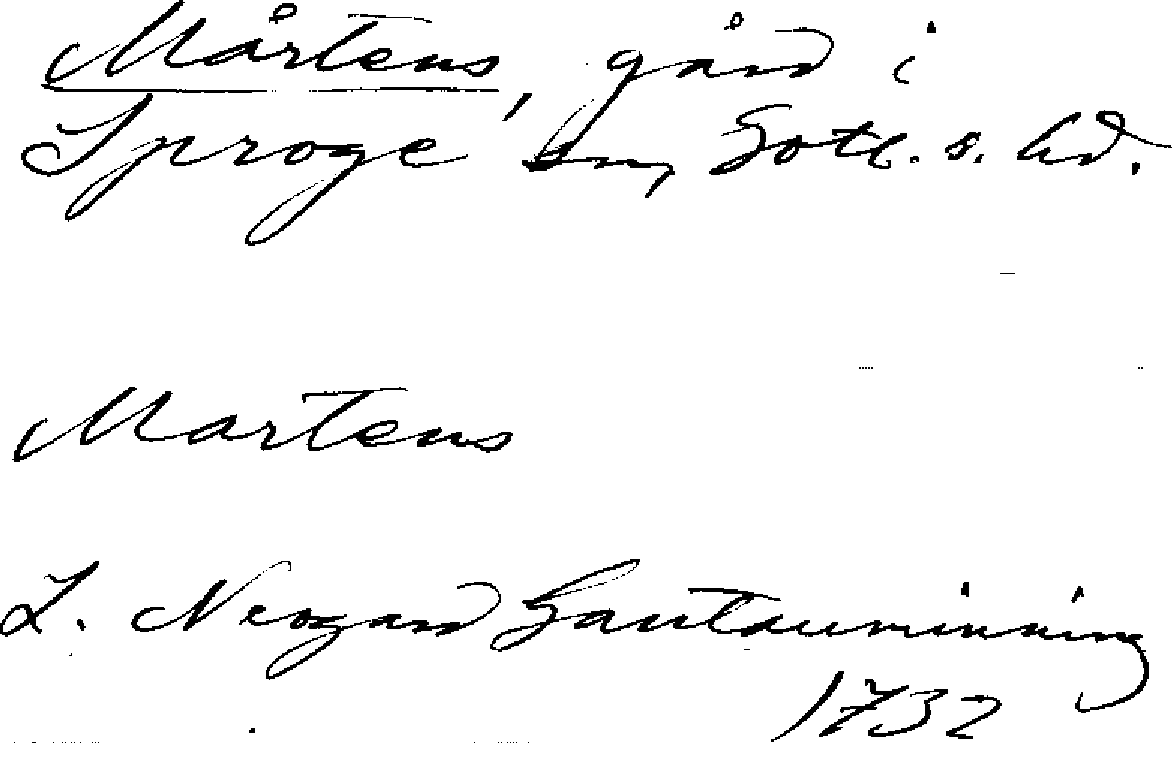 Mårtens, gård i
Sproge sn, Gotl. s. hd.
Martens
L. Neogard Gautauminning
1732